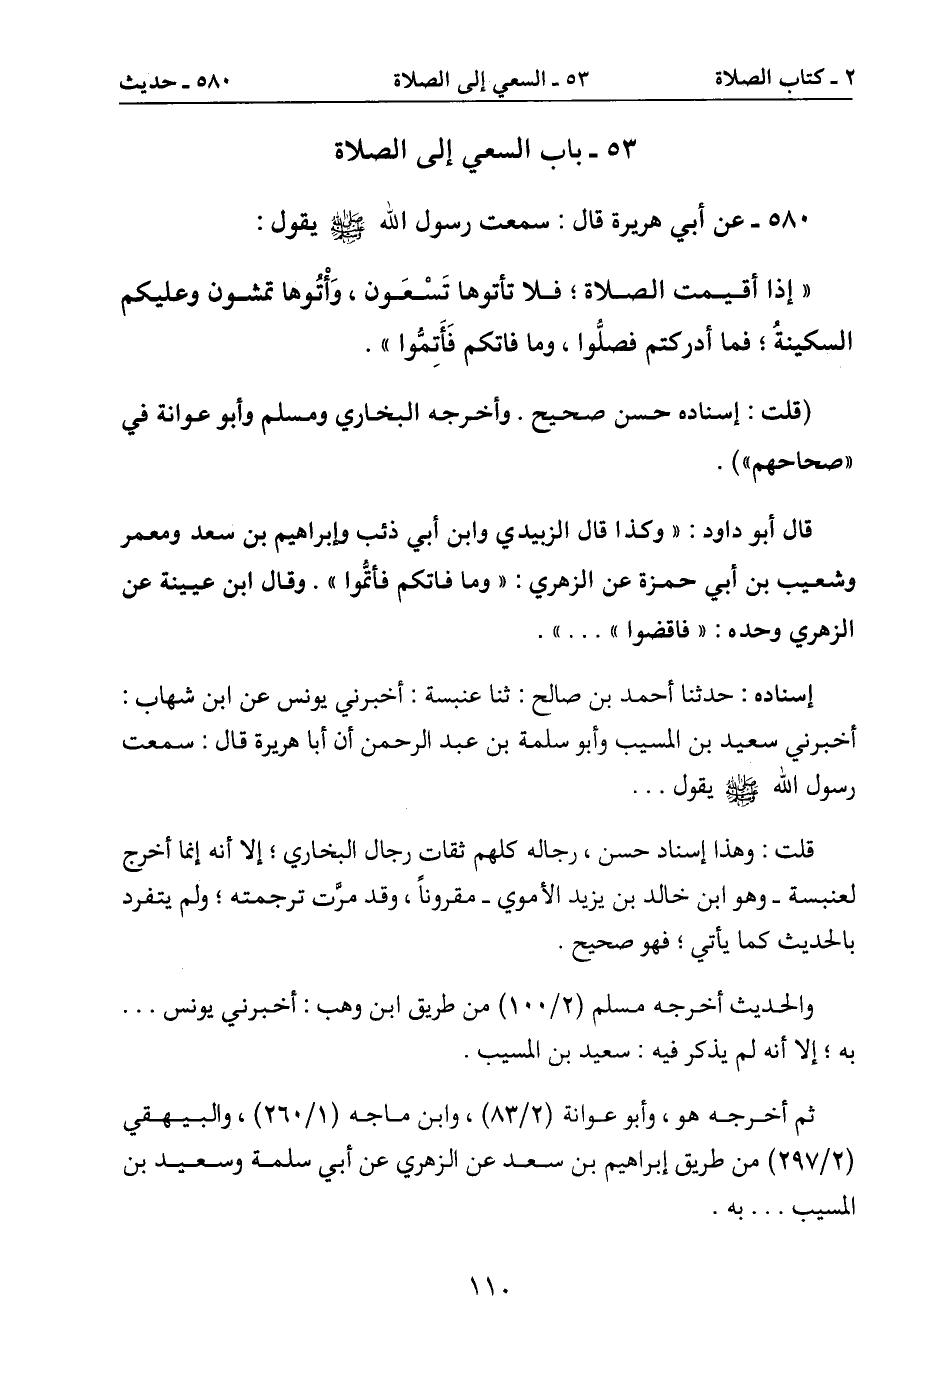 ٢ ـ كتاب الصلاة ٥٣ ـ السعي إلى الصلاة ٥٨٠ ـ حديث
٥٣ ـ باب السعي إلى الصلاة
٥٨٠ ـ عن أبي هريرة قال : سمعت رسول الله ﷺ يقول :
« إذا أقيمت الصلاة ؛ فلا تأتوها تَسْعَون ، وَأْتُوها تمشون وعليكم
السكينةُ ؛ فما أدركتم فصلُّوا ، وما فاتكم فَأَتِمُّوا » .
(قلت : إسناده حسن صحيح . وأخرجه البخاري ومسلم وأبو عوانة في
«صحاحهم») .
قال أبو داود : « وكذا قال الزبيدي وابن أبي ذئب وإبراهيم بن سعد ومعمر
وشعيب بن أبي حمزة عن الزهري : « وما فاتكم فأتمُّوا » . وقال ابن عيينة عن
الزهري وحده : « فاقضوا » . . . » .
إسناده : حدثنا أحمد بن صالح : ثنا عنبسة : أخبرني يونس عن ابن شهاب :
أخبرني سعيد بن المسيب وأبو سلمة بن عبد الرحمن أن أبا هريرة قال : سمعت
رسول الله ﷺ يقول . . .
قلت : وهذا إسناد حسن ، رجاله كلهم ثقات رجال البخاري ؛ إلا أنه إنما أخرج
لعنبسة ـ وهو ابن خالد بن يزيد الأموي ـ مقروناً ، وقد مرَّت ترجمته ؛ ولم يتفرد
بالحديث كما يأتي ؛ فهو صحيح .
والحديث أخرجه مسلم (١٠٠/٢) من طريق ابن وهب : أخبرني يونس . . .
به ؛ إلا أنه لم يذكر فيه : سعيد بن المسيب .
ثم أخرجه هو ، وأبو عوانة (٨٣/٢) ، وابن ماجه (٢٦٠/١) ، والبيهقي
(٢٩٧/٢) من طريق إبراهيم بن سعد عن الزهري عن أبي سلمة وسعيد بن
المسيب . . . به .
١١٠